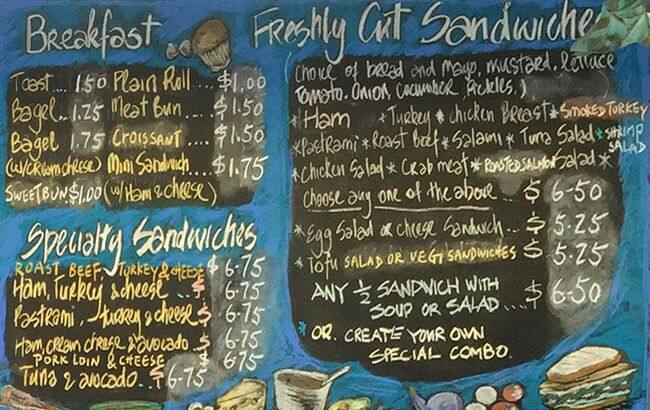 Breakfast
Toast.... 1.50 Plain Roll ... $1.00
Bagel... 1.25 Meat Bun ... $1.50
Bagel 1.75 Croissant ..... $1.50
(w/cream cheese) Mini Sandwich..... $1.75
Sweet Bun $1.00 (w/Ham & cheese)
Specialty Sandwiches
ROAST BEEF TURKEY & CHEESE $ 6.75
Ham, Turkey & cheese .. $ 6.75
Pastrami, turkey & cheese $ 6.75
Ham, cream cheese & avocado . $ 6.75
PORK LOIN & CHEESE $ 6.75
Tuna & avocado... $ 6.75
Freshly Cut Sandwiches
(choice of bread and mayo, mustard, lettuce
Tomato. Onion, cucumber Pickles.)
*Ham *Turkey *chicken Breast *SMOKED TURKEY
*Pastrami *Roast Beef *Salami *Tuna Salad *SHRIMP SALAD
*Chicken Salad *Crab meat *ROASTED SALMON Salad *
Choose any one of the above ... $ 6-50
*Egg Salad or cheese Sandwich.... $ 5.25
*Tofu SALAD OR VEGI SANDWICHES $ 5.25
ANY ½ SANDWICH WITH
SOUP OR SALAD.... $ 6-50
*OR. CREATE YOUR OWN
SPECIAL COMBO.